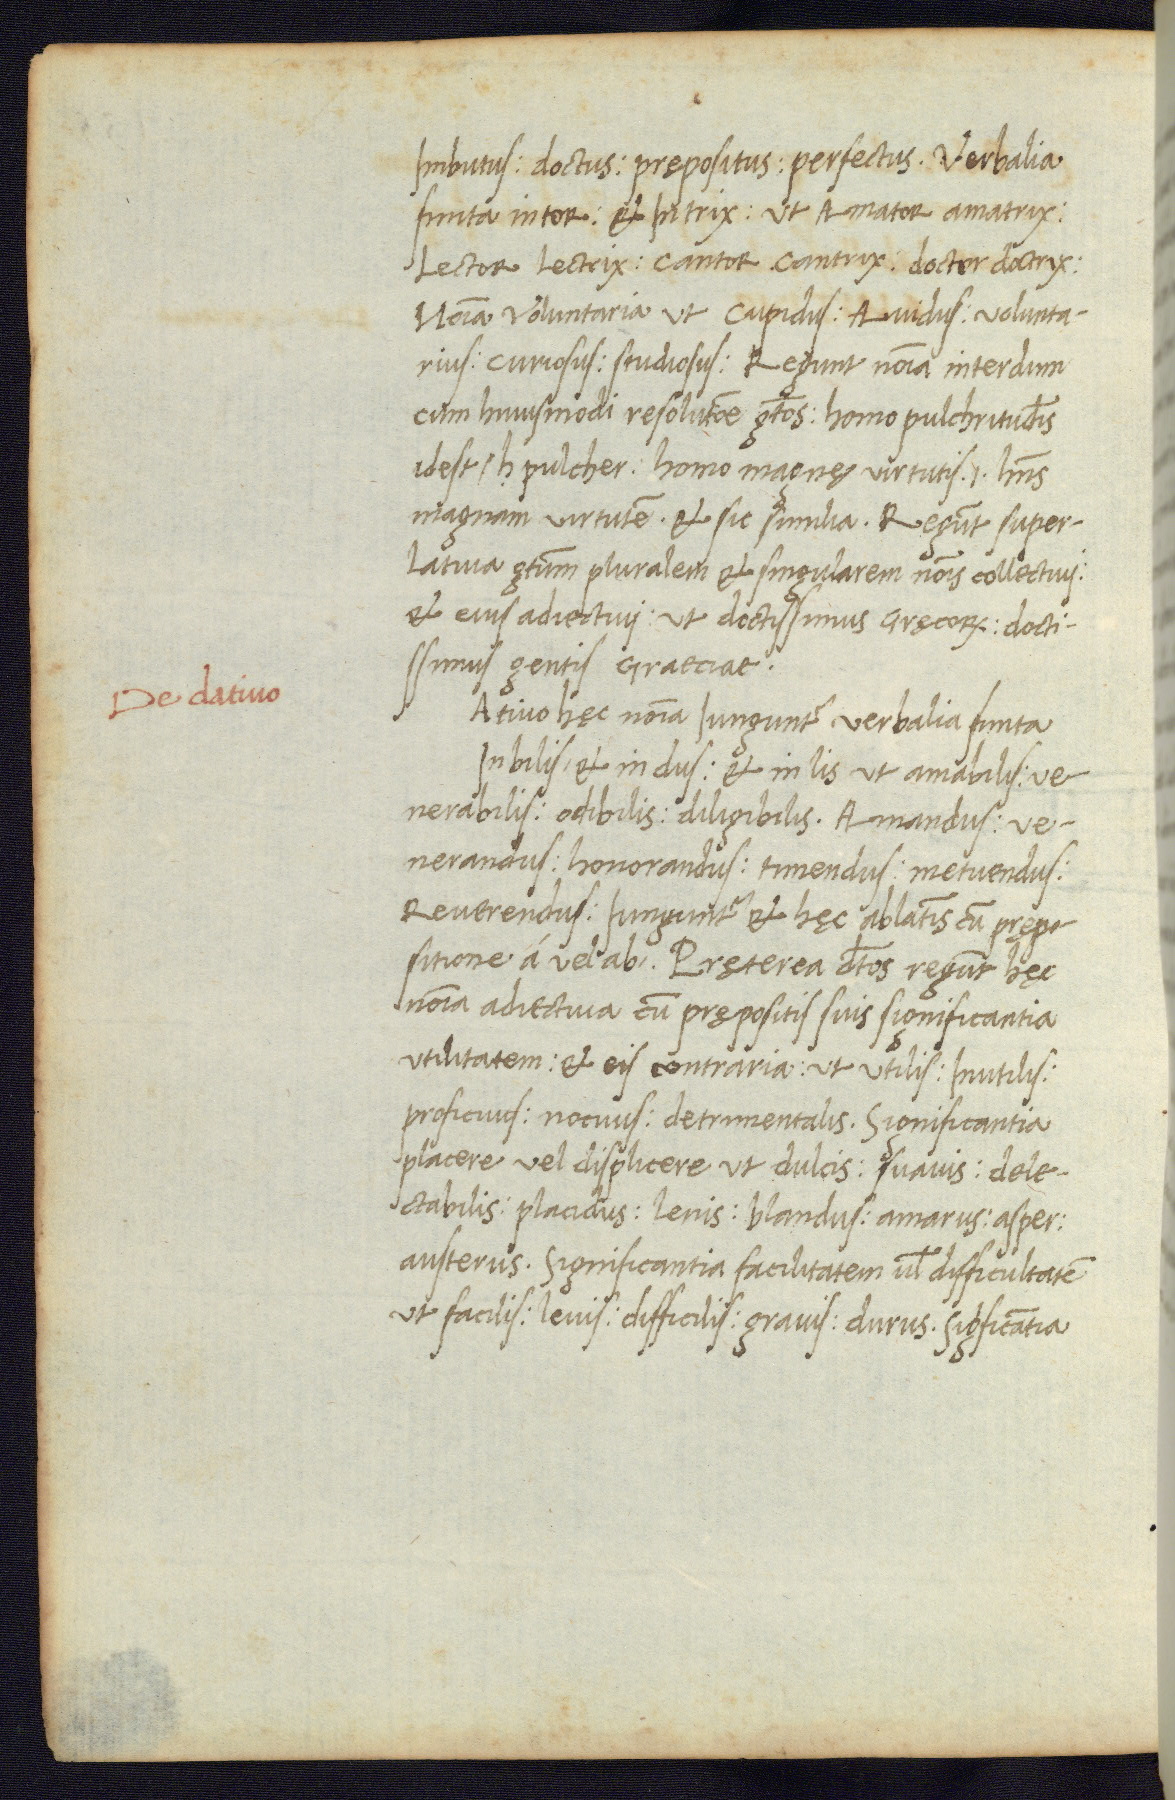 Imbutus: doctus: pręposıtus: perfectus. Verbalia
finita in tor: & In trix: ut Amator amatrix:
Lector lectrix: cantor cantrix: doctor doctrix:
Noı̄a Voluntaria ut Cupidus: Auidus: volunta-
rius: curiosus: studiosus: Regunt noı̄a interdum
cum huiusmodi resolutōe gt̄os: homo pulchritud̄is
idest / h pulcher: homo magnę virtutis .i. hn̄s
magnam virtutē. & sic similia. Regūt super-
latiua gt̄um pluralem & singularem noı̄s collectiuj:
& eius adiectiuj: ut doctissimus Gręcoꝝ: docti-
ssimus gentis Graeciae.
De datiuo
Atiuo hęc noı̄a Iungunt᷑ verbalia finita
In bilis, & in dus: & in lis ut amabilis: ve-
nerabilis: odibilis: diligibilis. Amandus: ve-
nerandus: honorandus: timendus: metuendus:
Reuerendus: Iungunt᷑ & hęc ablatı̄s cū prępo-
sitione á vel ab. Pręterea dt̄os regūt hęc
noı̄a adiectiua cū prępositis suis significantia
utilitatem: & eis contraria: ut utilis: Inutilis:
proficuus: nocuus: detrimentalis. Significantia
placere vel displicere ut dulcis: suauis: dele-
ctabilis: placidus: lenis: blandus: amarus: asper:
austerus. Significantia facilitatem ul̄ difficultatē
ut facilis: leuis: difficilis: grauis: durus. Sigficātia